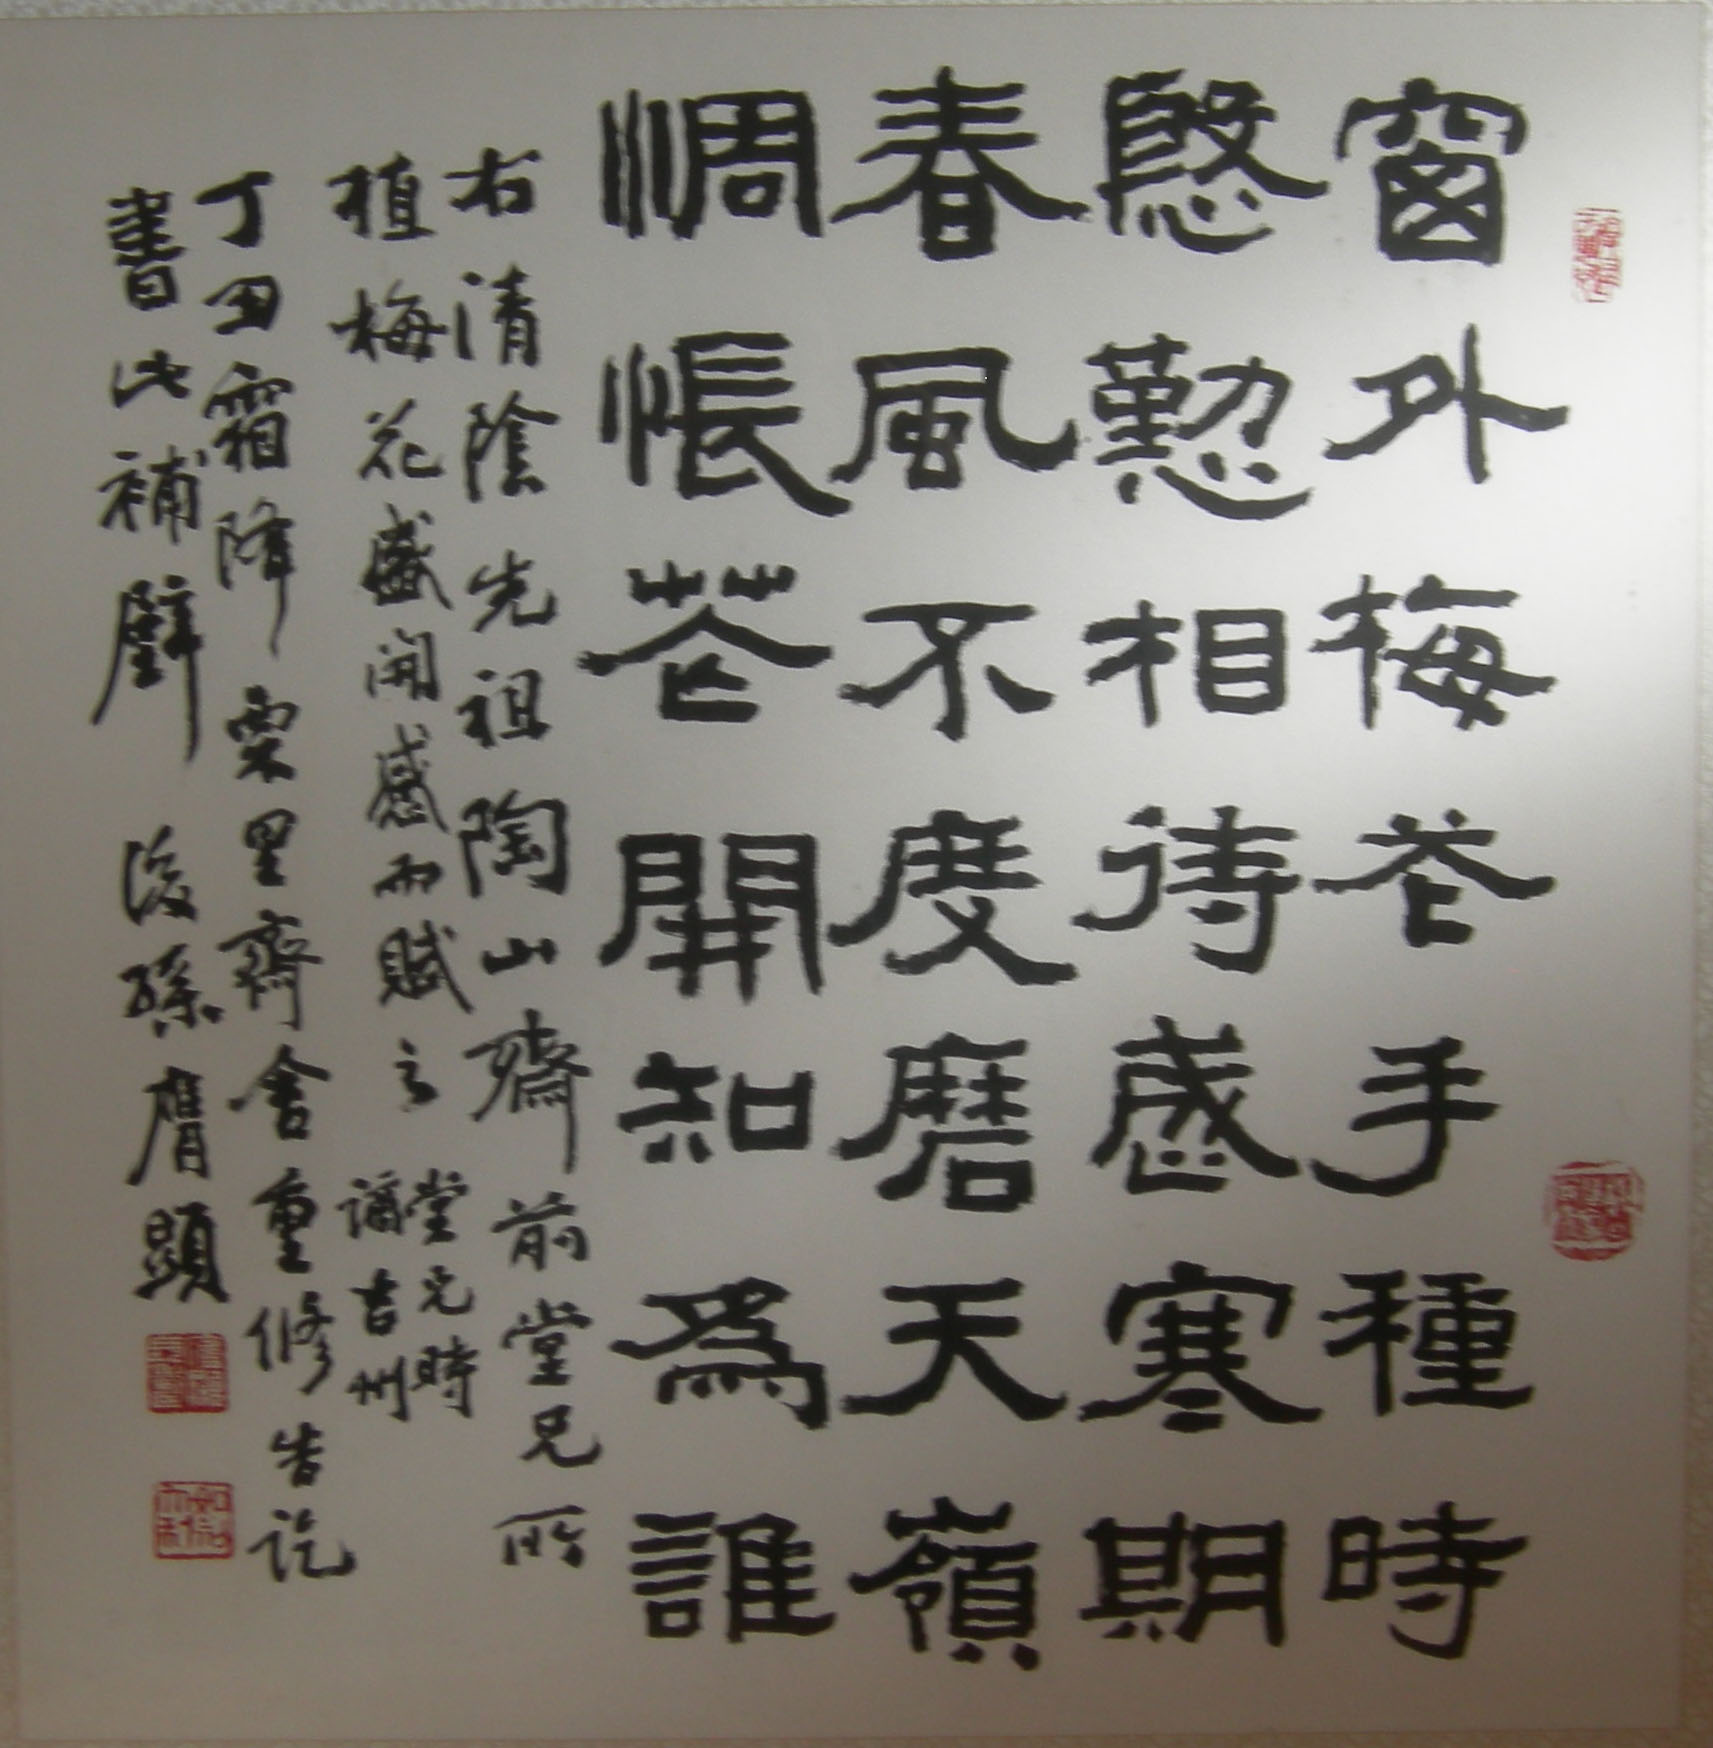 窗外梅花手種時
慇懃相待歲寒期
春風不度磨天嶺
惆悵花開知為誰
右清陰先祖陶山齋前堂兄所
植梅花盛開感而賦之
堂兄時
謫吉州
丁丑霜降栗里齋舍重修告訖
書此補壁 後孫膺顯